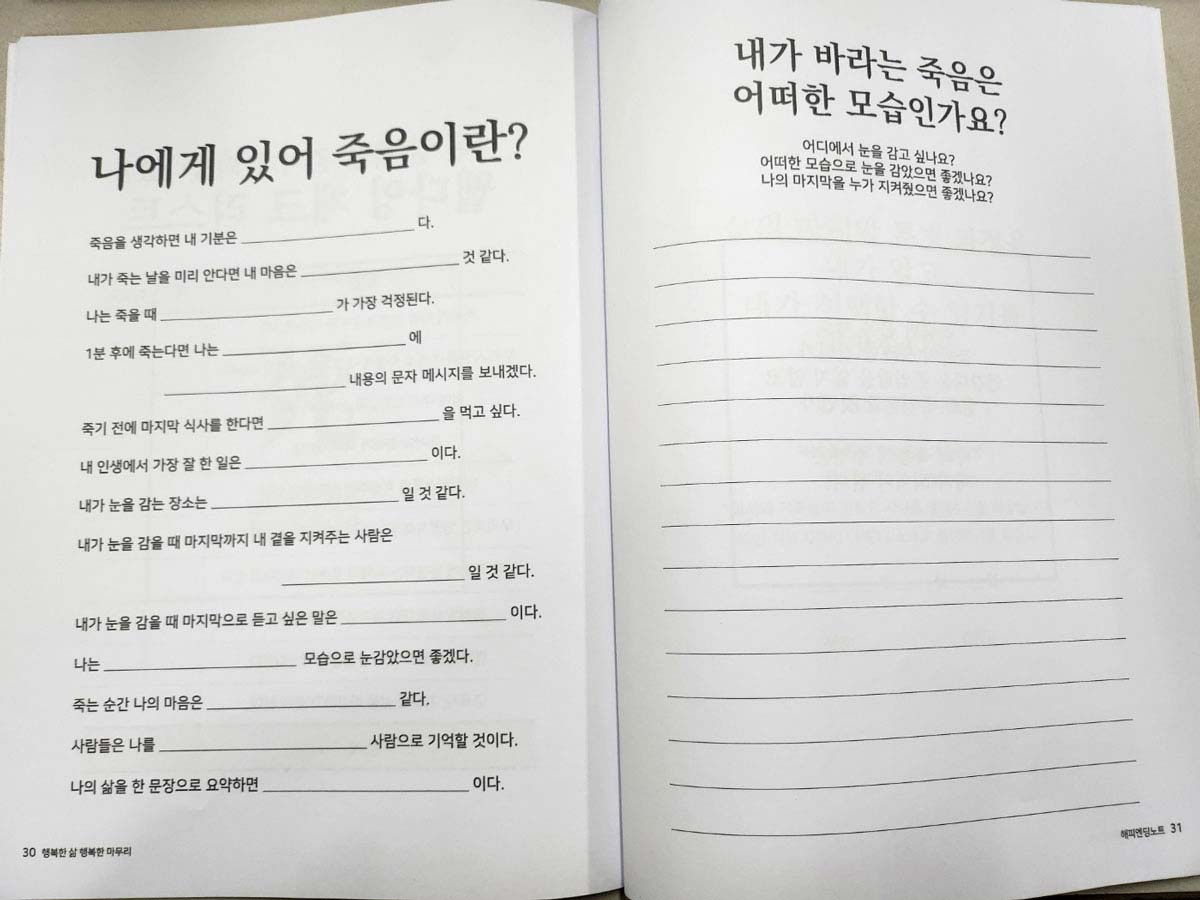 나에게 있어 죽음이란?
죽음을 생각하면 내 기분은 ____________ 다.
내가 죽는 날을 미리 안다면 내 마음은 ____________ 것 같다.
나는 죽을 때 ____________ 가 가장 걱정된다.
1분 후에 죽는다면 나는 ____________ 에
____________ 내용의 문자 메시지를 보내겠다.
죽기 전에 마지막 식사를 한다면 ____________ 을 먹고 싶다.
내 인생에서 가장 잘 한 일은 ____________ 이다.
내가 눈을 감는 장소는 ____________ 일 것 같다.
내가 눈을 감을 때 마지막까지 내 곁을 지켜주는 사람은
____________ 일 것 같다.
내가 눈을 감을 때 마지막으로 듣고 싶은 말은 ____________ 이다.
나는 ____________ 모습으로 눈감았으면 좋겠다.
죽는 순간 나의 마음은 ____________ 같다.
사람들은 나를 ____________ 사람으로 기억할 것이다.
나의 삶을 한 문장으로 요약하면 ____________ 이다.
30 행복한 삶 행복한 마무리
내가 바라는 죽음은
어떠한 모습인가요?
어디에서 눈을 감고 싶나요?
어떠한 모습으로 눈을 감았으면 좋겠나요?
나의 마지막을 누가 지켜줬으면 좋겠나요?
해피엔딩노트 31